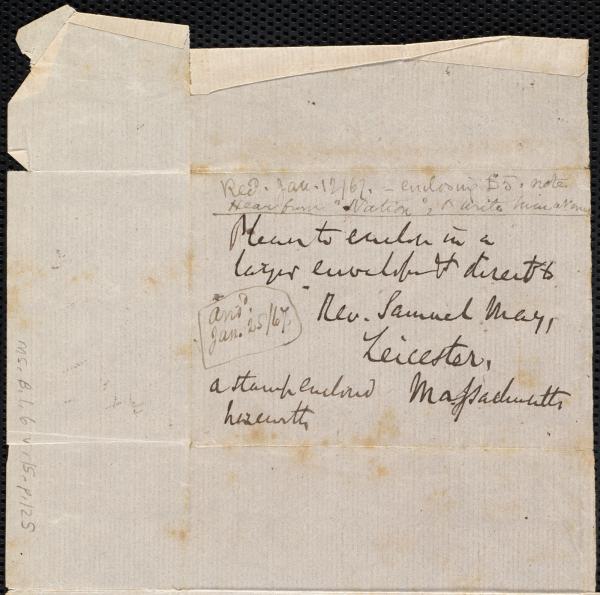 Recd. Jan. 12/67. - enclosing $5. note
Hear from "Nation", & write him
Please to enclose in a
larger envelope & direct to
Rev. Samuel May,
Leicester,
Massachusetts
ansd.
Jan. 25/67.
a stamp enclosed
herewith
Ms. B. 1. 6 v. 15, p. 125